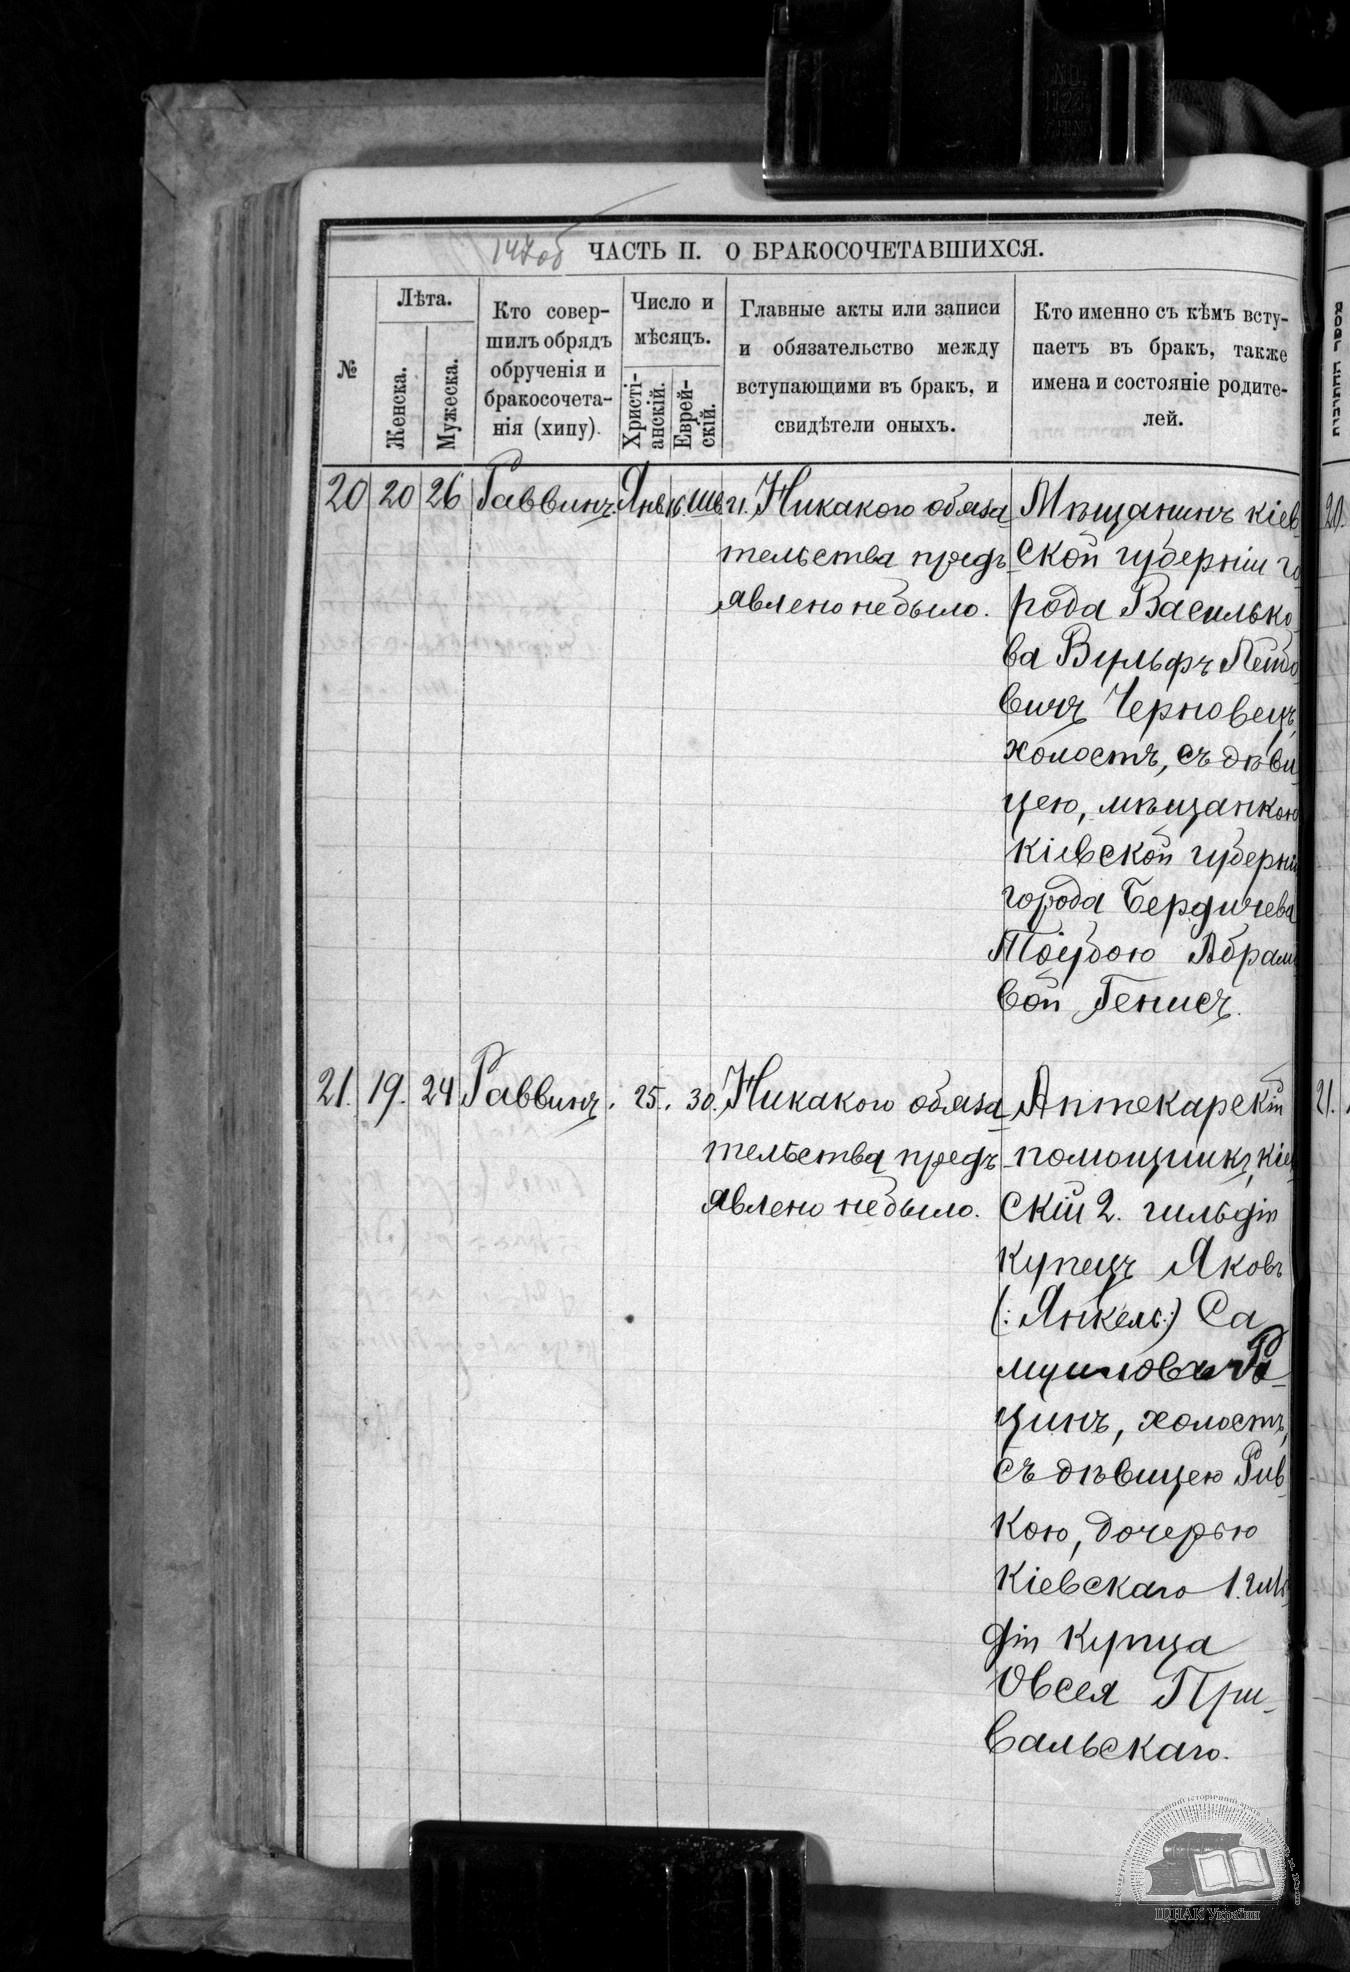 147об
ЧАСТЬ II. О БРАКОСОЧЕТАВШИХСЯ.
№
Лѣта.
Женска.
Мужеска.
Кто совер-
шилъ обрядъ
обрученія и
бракосочета-
нія (хипу).
Число и
мѣсяцъ.
Христі-
анскій.
Еврей-
скій.
Главные акты или записи
и обязательство между
вступающими въ бракъ, и
свидѣтели оныхъ.
Кто именно съ кѣмъ всту-
паетъ въ бракъ, также
имена и состояніе родите-
лей.
20 20 26 Раввинъ Янв. 16 Шв. 21. Никакого обяза-
тельства предъ-
явлено не было.
Мѣщанинъ кіев
ской губерніи го
рода Василько-
ва Вульфъ Лейбо
вичъ Черновецъ,
холостъ, съ дѣви
цею, мѣщанкою
кіевской губерні
города Бердичева
Тойбою Абрамо
вой Генисъ.
21. 19. 24 Раввинъ. 25. 30. Никакого обяза-
тельства предъ-
явлено не было.
Аптекарскій
помощникъ, кіев
скій 2. гильдіи
купецъ Яковъ
(: Янкель :) Са
муиловъ Ра-
цинъ, холостъ,
съ дѣвицею Рив-
кою, дочерью
кіевскаго 1. гиль
діи купца
Овсея При-
вальскаго.
20.
21.
ЦДІАК України